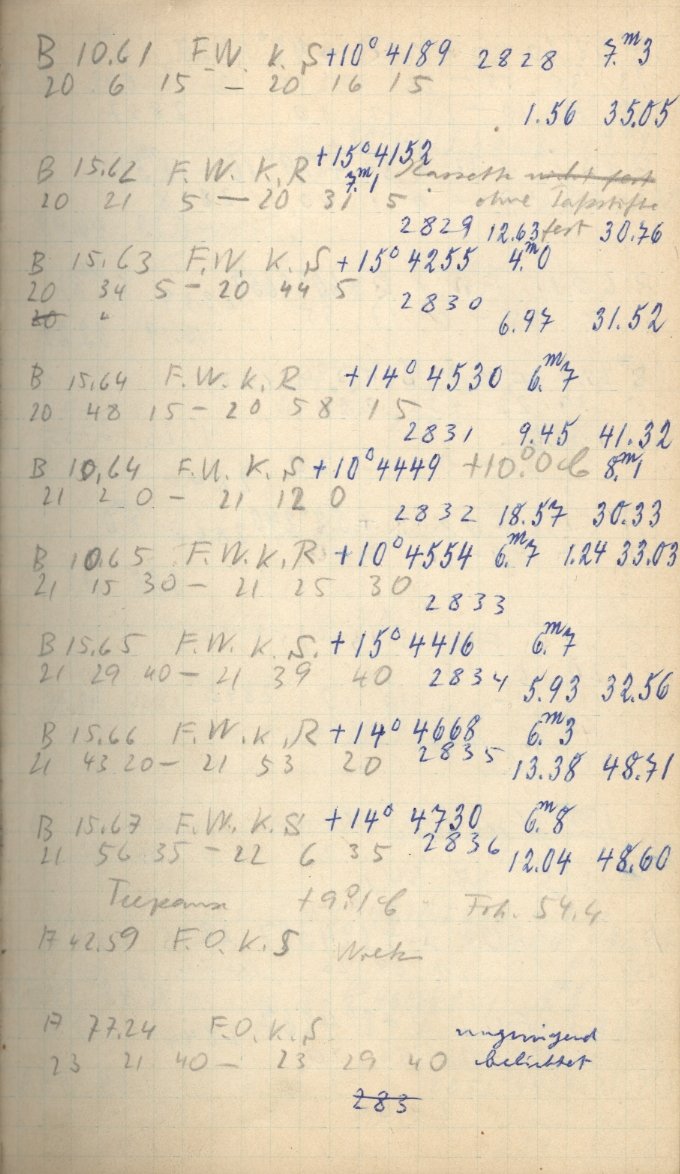 B 10.61 F.W. K.S +10° 4189 2828 7.m3
20 6 15 — 20 16 15
1.56 35.05
+15° 4152
B 15.62 F.W. K.R 7.m1 Kassette nicht fest
20 21 5 — 20 31 5 ohne Passstifte
2829 12.63 fest 30.76
B 15.63 F.W. K.S +15° 4255 4.m0
20 34 5 — 20 44 5 2830
20 "
6.97 31.52
B 15.64 F.W. K.R +14° 4530 6.m7
20 48 15 — 20 58 15
2831 9.45 41.32
B 10.64 F.W. K.S +10° 4449 +10.°0 8.m1
21 2 0 — 21 12 0
2832 18.57 30.33
B 10.65 F.W. K.R +10° 4554 6.m7 1.24 33.03
21 15 30 — 21 25 30
2833
B 15.65 F.W. K.S. +15° 4416 6.m7
21 29 40 — 21 39 40 2834 5.93 32.56
B 15.66 F.W. K.R +14° 4668 6.m3
21 43 20 — 21 53 20 2835 13.38 48.71
B 15.67 F.W. K.S +14° 4730 6.m8
21 56 35 — 22 6 35 2836 12.04 48.60
+9.°1 54.4
A 42.59 F.O. K.S
A 77.24 F.O. K.S ungenügend
23 21 40 — 23 29 40 belichtet
283